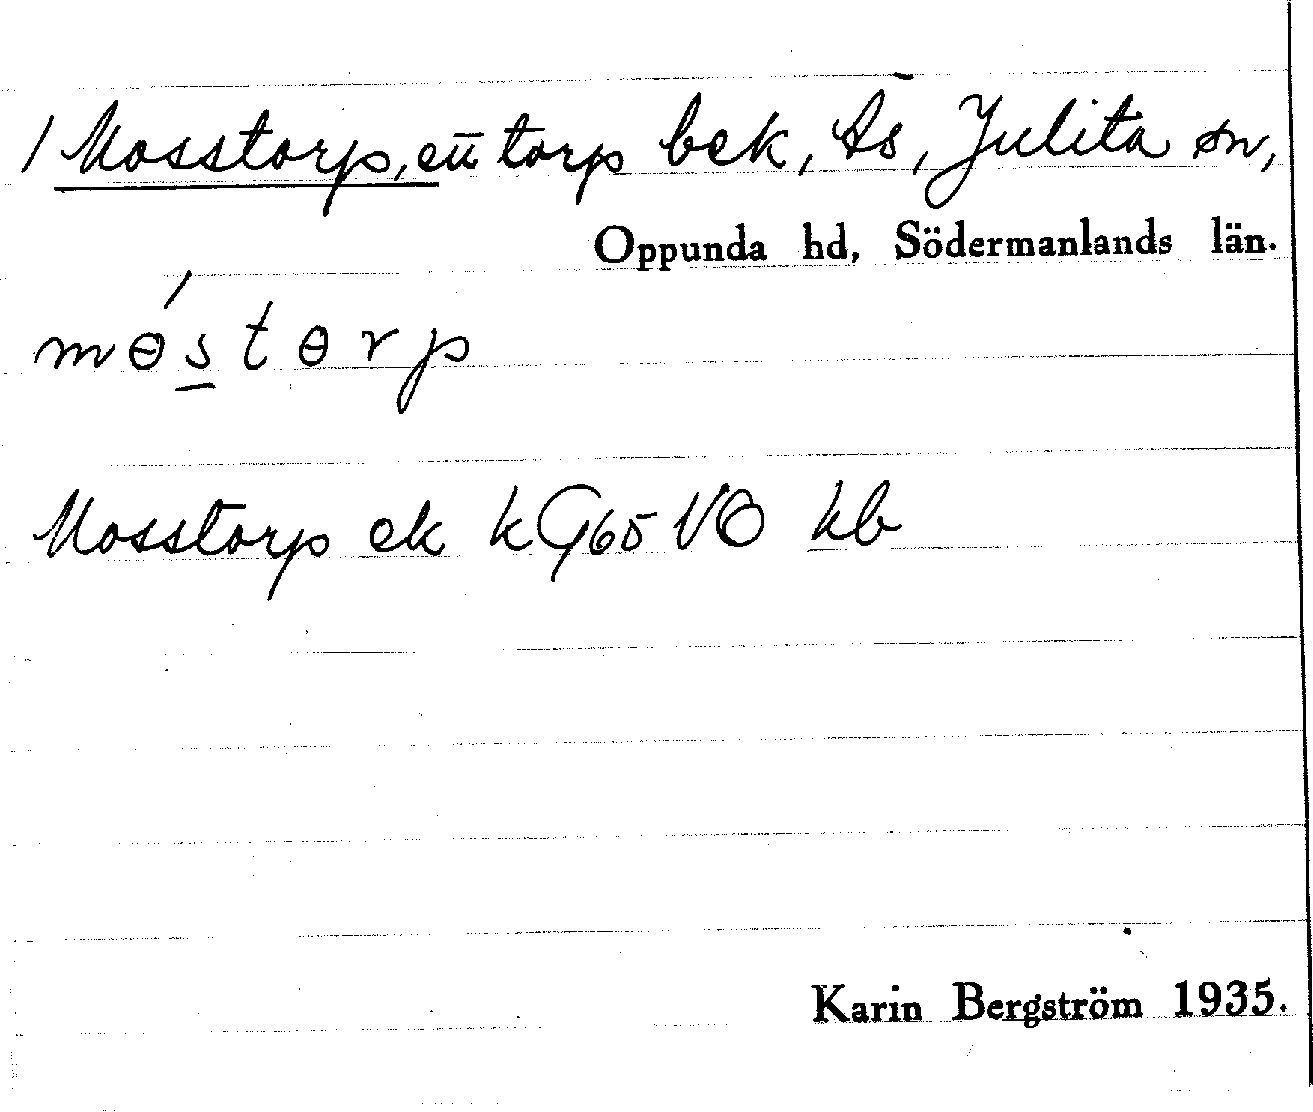 / Mosstorp, ett torp bek, Äs, Julita sn,
Oppunda hd, Södermanlands län.
mɵ́s̲tɵrp
Mosstorp ek kG65 VO kb
Karin Bergström 1935.